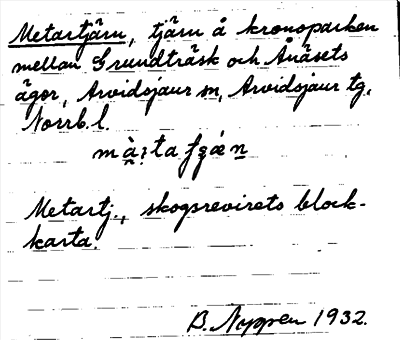 Metartjärn, tjärn å kronoparken
mellan Grundträsk och Ånäsets
ägor, Arvidsjaur sn, Arvidsjaur tg,
Norrb. l.
Metartj., skogsrevirets block-
karta.
B. Nyppen 1932.